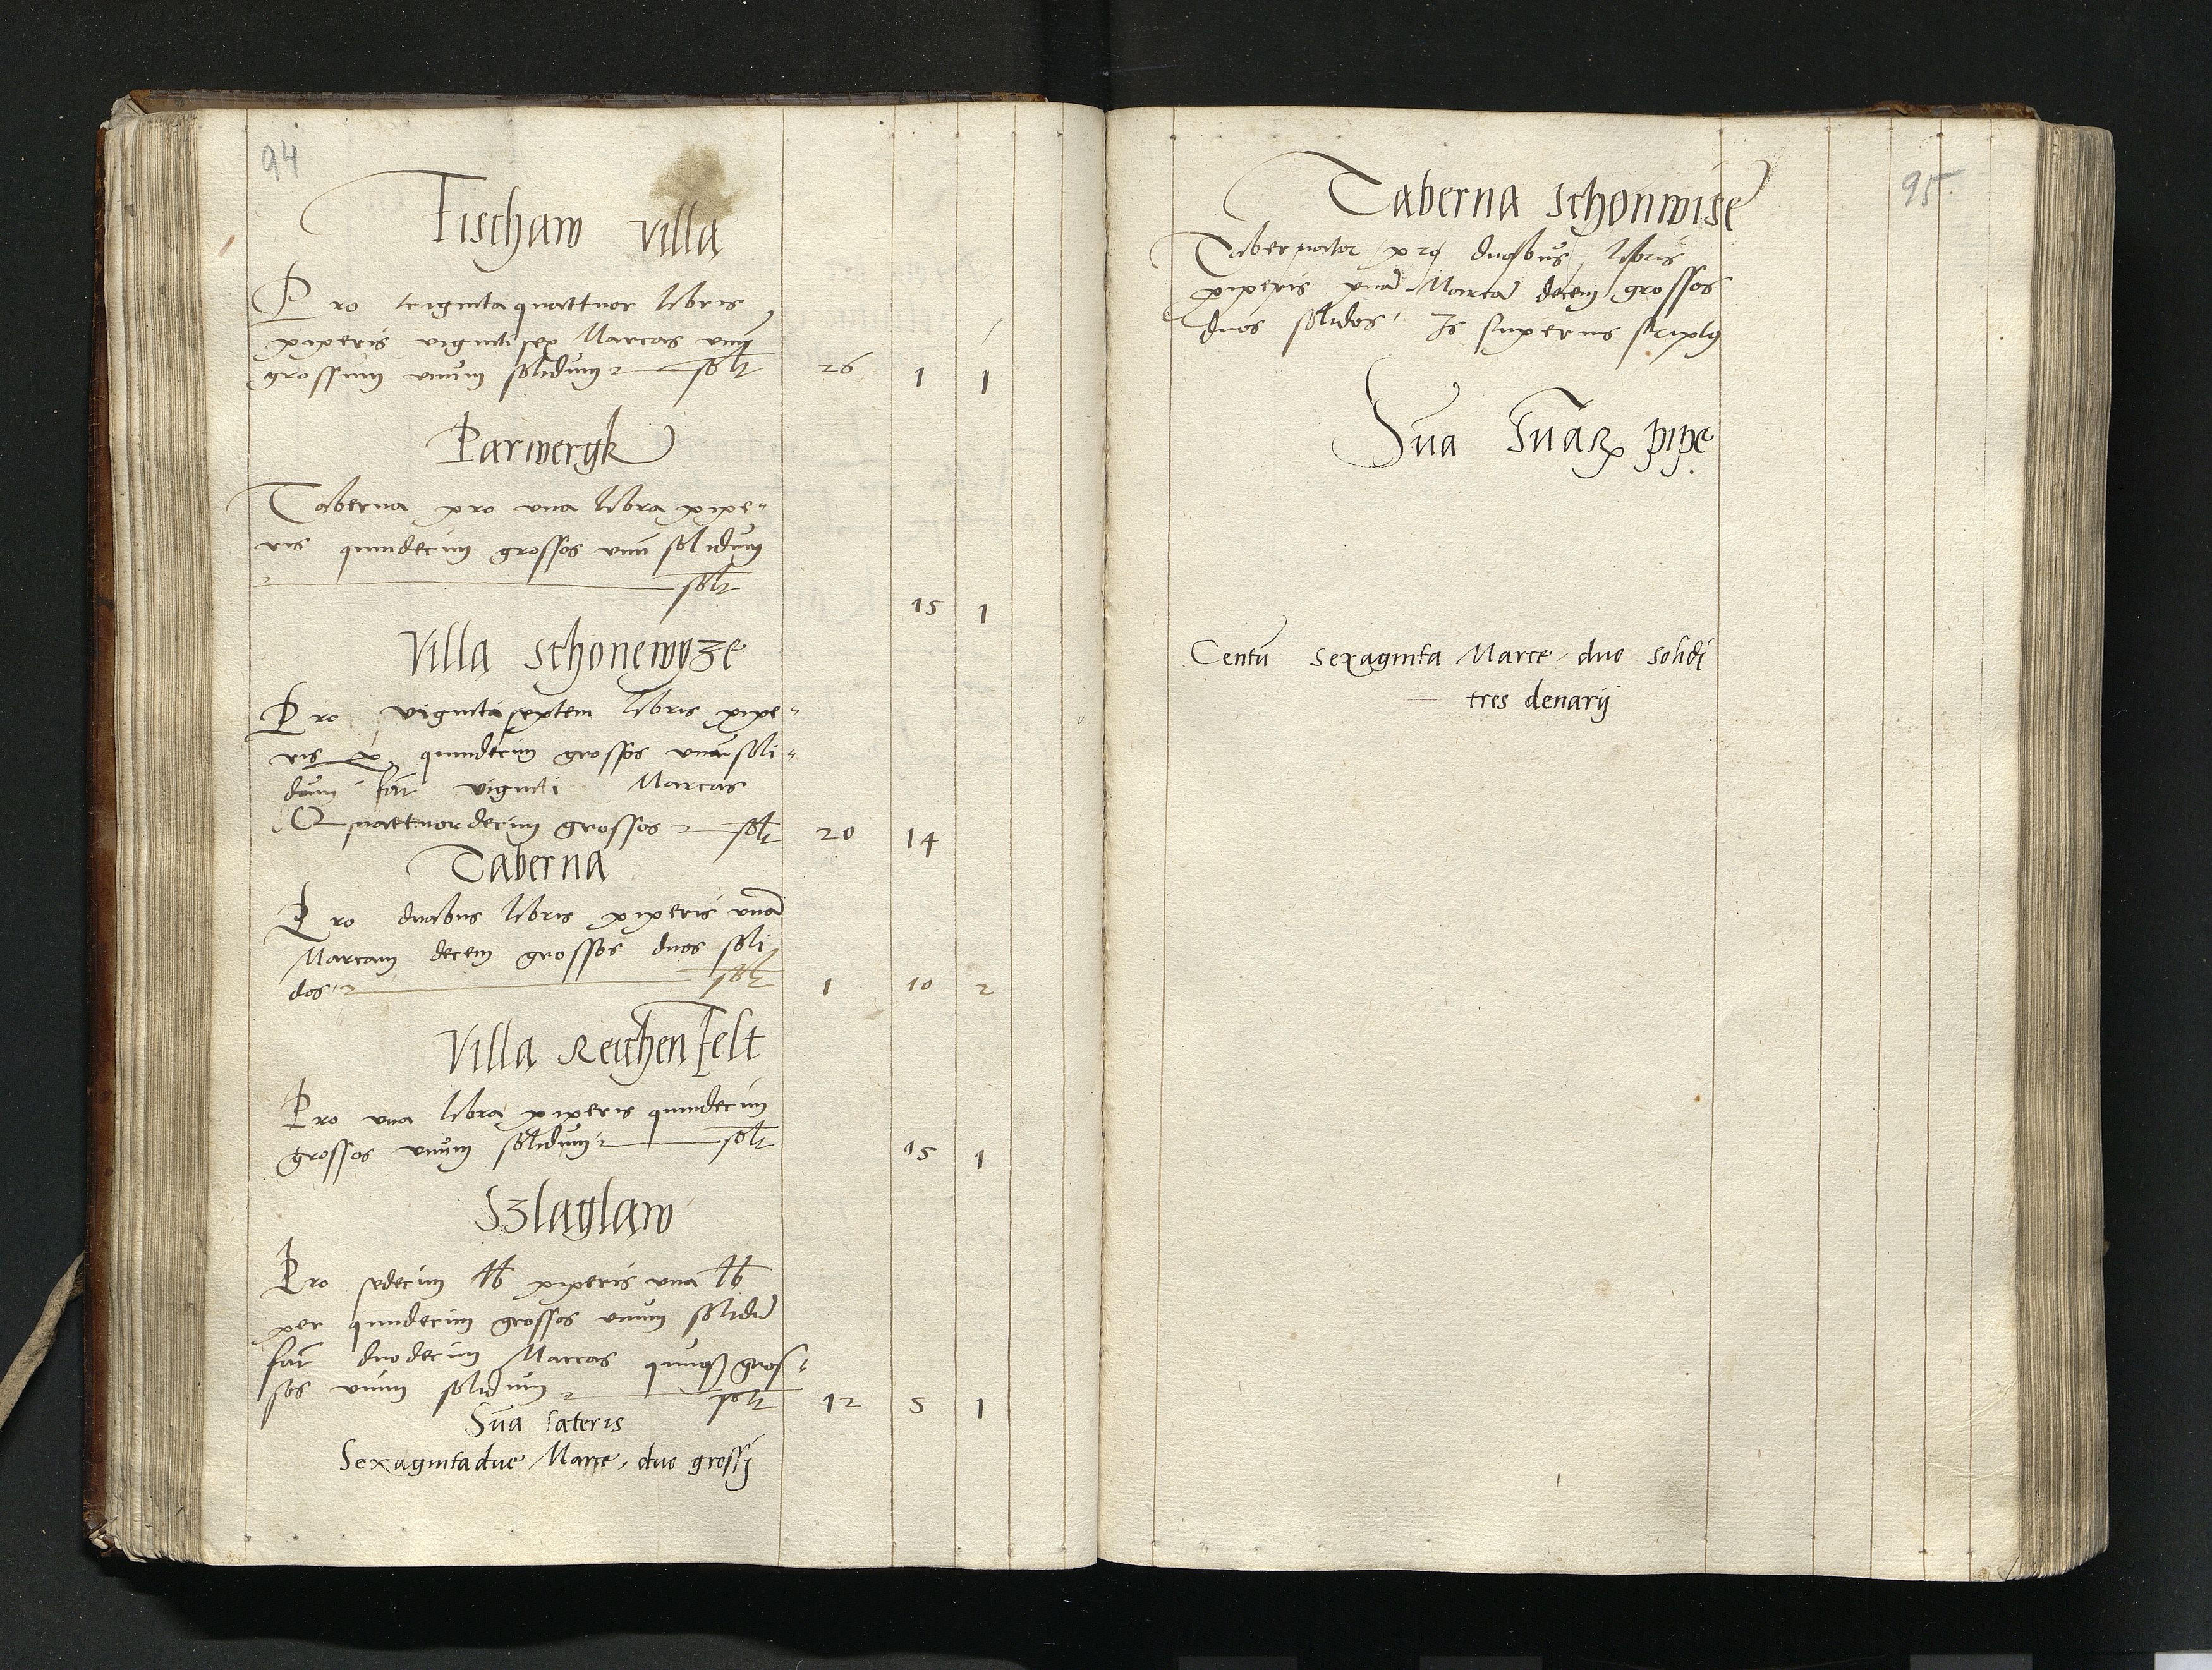 94
Fischaw villa
Pro trigintaquattuor libris
piperis vigintisex Marcas unū
grossum unum solidum solt 26 1 1
Parwergk
Taberna pro una libra pipe-
ris quindecim grossos unū solidum
solt 15 1
Villa schonewyze
Pro vigintiseptem libris pipe-
ris quindecim grossos unum soli-
dum fāt viginti Marcas
Quattuordecim grossos solt 20 14
Taberna
Pro duabus libris piperis unā
Marcam decem grossos duos soli
dos solt 1 10 2
Villa Reichenfelt
Pro una libra piperis quindecim
grossos unum solidum solt 15 1
Szlaglaw
Pro sedecim lb piperis una lb
per quindecim grossos unum solidū
fāt duodecim Marcas quinqʒ gros-
sos unum solidum solt 12 5 1
Sūa lateris
Sexagintadue Marce, duo grossj
95
Taberna schonwise
Tabernator pro duabus libris
piperis unā Marcā decem grossos
duos solidos Is superius scriptꝰ
Sūa Sūaꝝ pipe
Centū sexaginta Marce, duo solidj
tres denarij